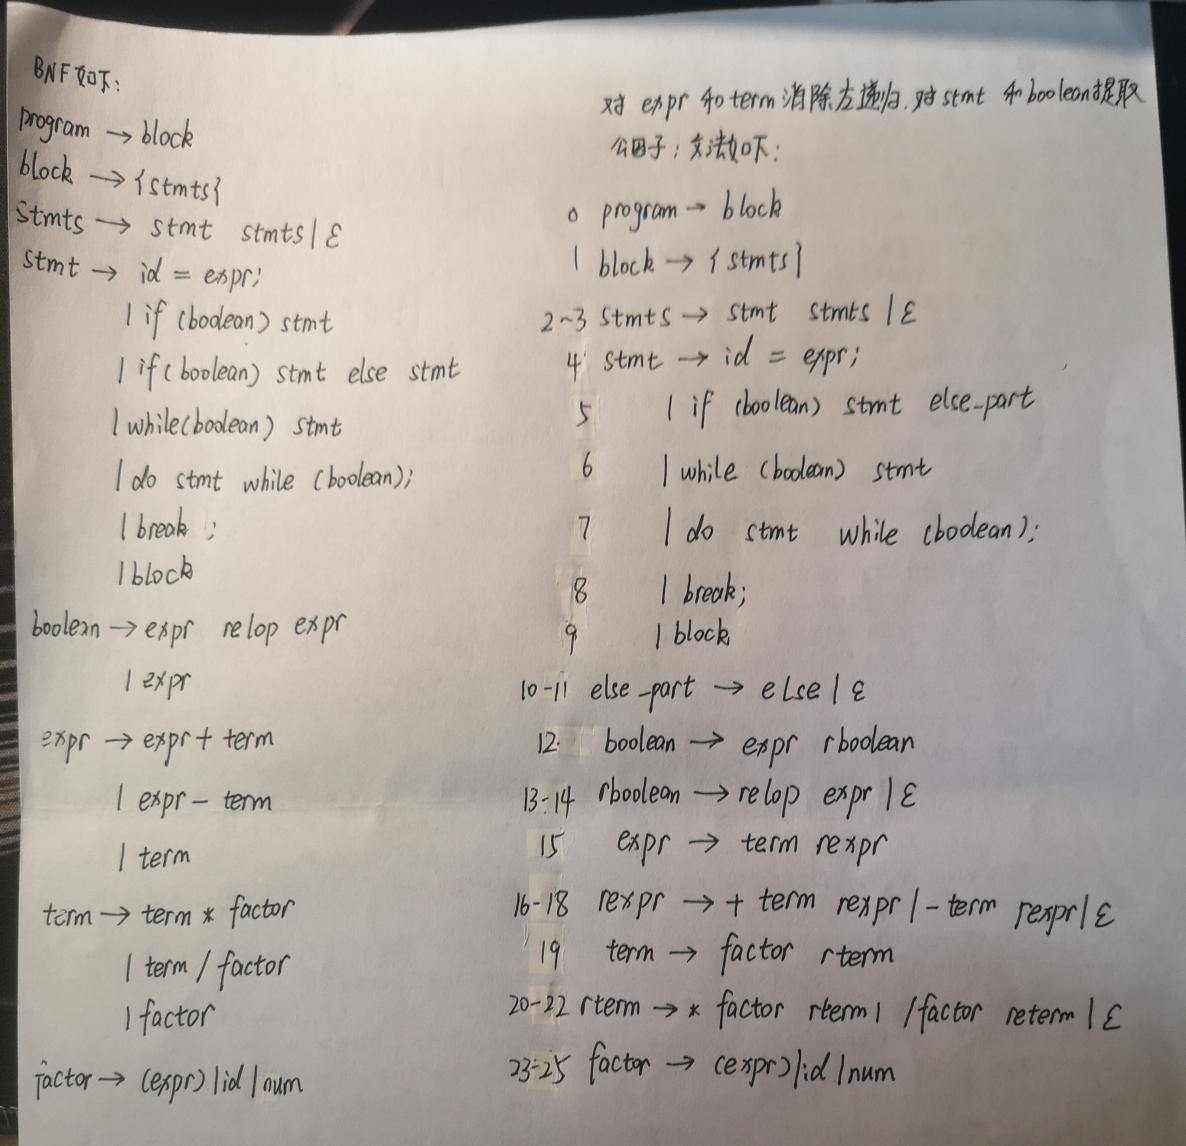 BNF如下:
program → block
block → {stmts}
stmts → stmt stmts | ε
stmt → id = expr;
| if (boolean) stmt
| if (boolean) stmt else stmt
| while(boolean) stmt
| do stmt while (boolean);
| break ;
| block
boolean → expr relop expr
| expr
expr → expr + term
| expr - term
| term
term → term * factor
| term / factor
| factor
factor → (expr) | id | num
对 expr 和 term 消除左递归,对 stmt 和 boolean 提取
公因子;文法如下:
0 program → block
1 block → {stmts}
2~3 stmts → stmt stmts | ε
4 stmt → id = expr;
5 | if (boolean) stmt else_part
6 | while (boolean) stmt
7 | do stmt while (boolean);
8 | break;
9 | block
10-11 else_part → else | ε
12 boolean → expr rboolean
13-14 rboolean → relop expr | ε
15 expr → term rexpr
16-18 rexpr → + term rexpr | - term rexpr | ε
19 term → factor rterm
20-22 rterm → * factor rterm | /factor reterm | ε
23-25 factor → (expr) | id | num